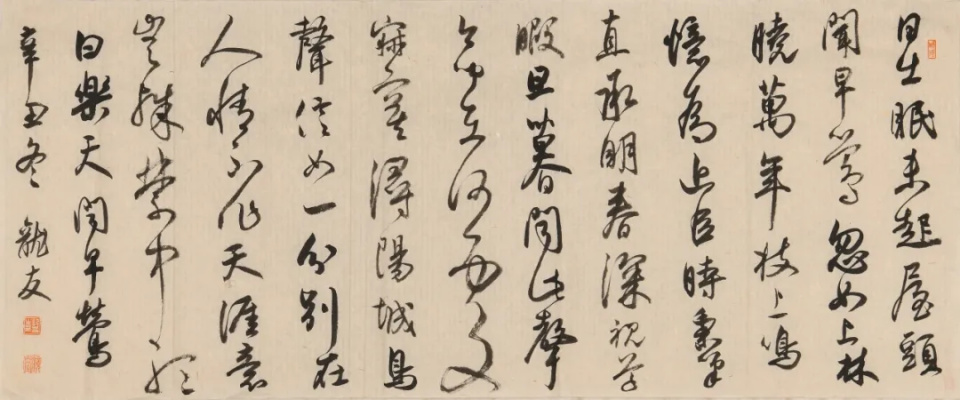 日出眠未起屋頭
聞早鶯忽如上林
曉萬年枝上鳴
憶為近臣時秉筆
直承明春深視草
暇旦暮聞此聲
今聞在何處
寂寞潯陽城鳥
聲信如一分別在
人情不作天涯意
豈殊禁中聽
白樂天聞早鶯
辛丑冬 龍友